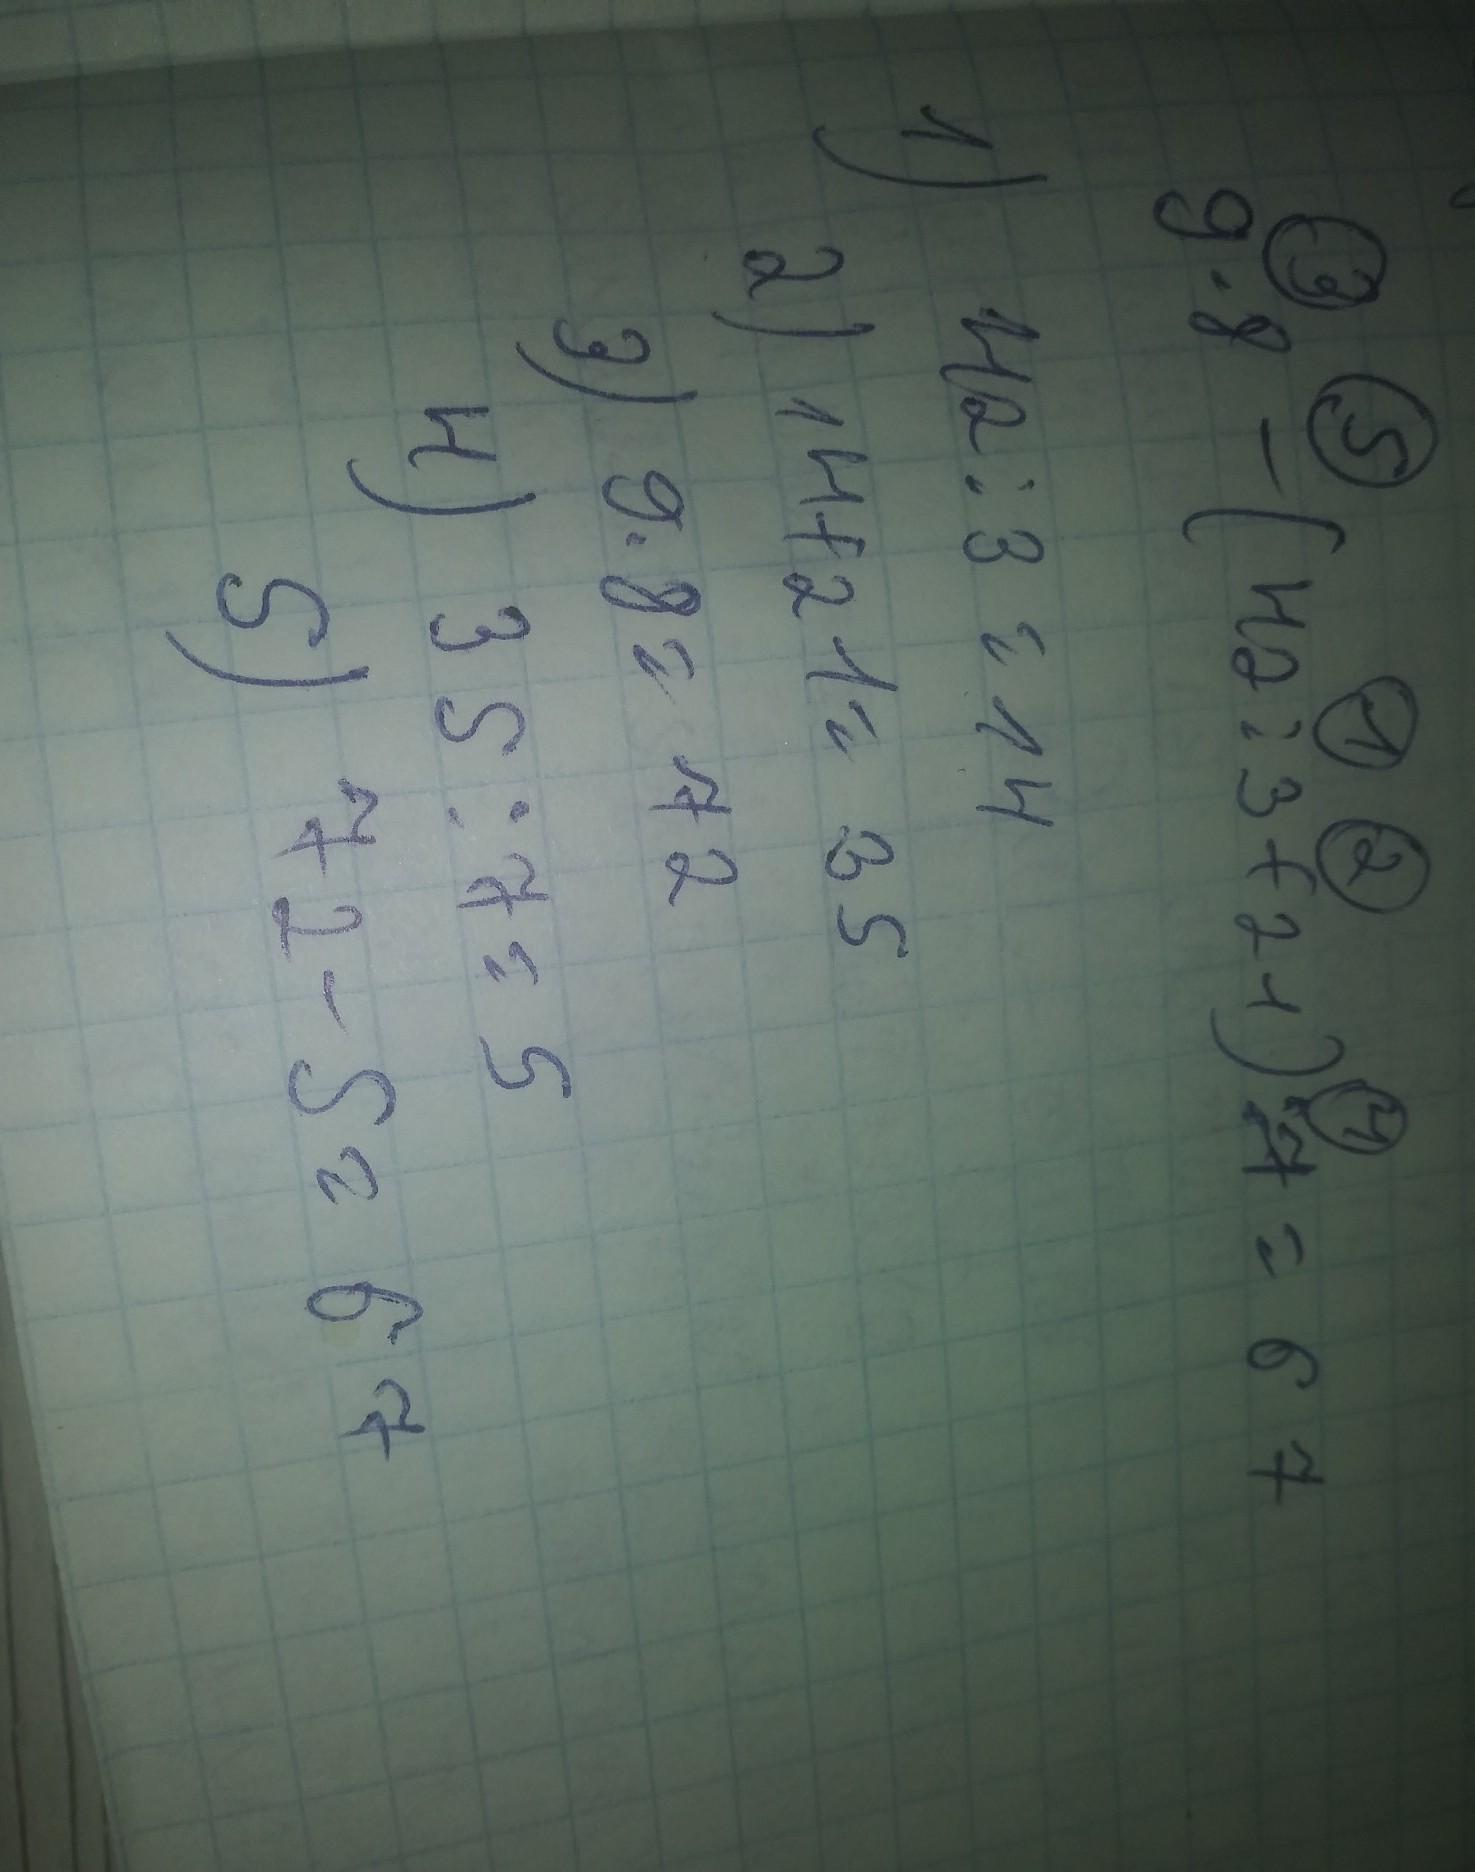 3 5 1 2 4
9·8 - (42:3+21):7 = 67
1) 42:3=14
2) 14+21=35
3) 9·8=72
4) 35:7=5
5) 72-5=67